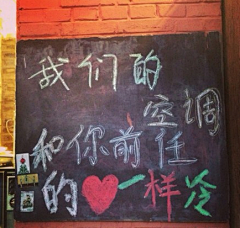 我们的
空调
和你前任
的❤一样冷